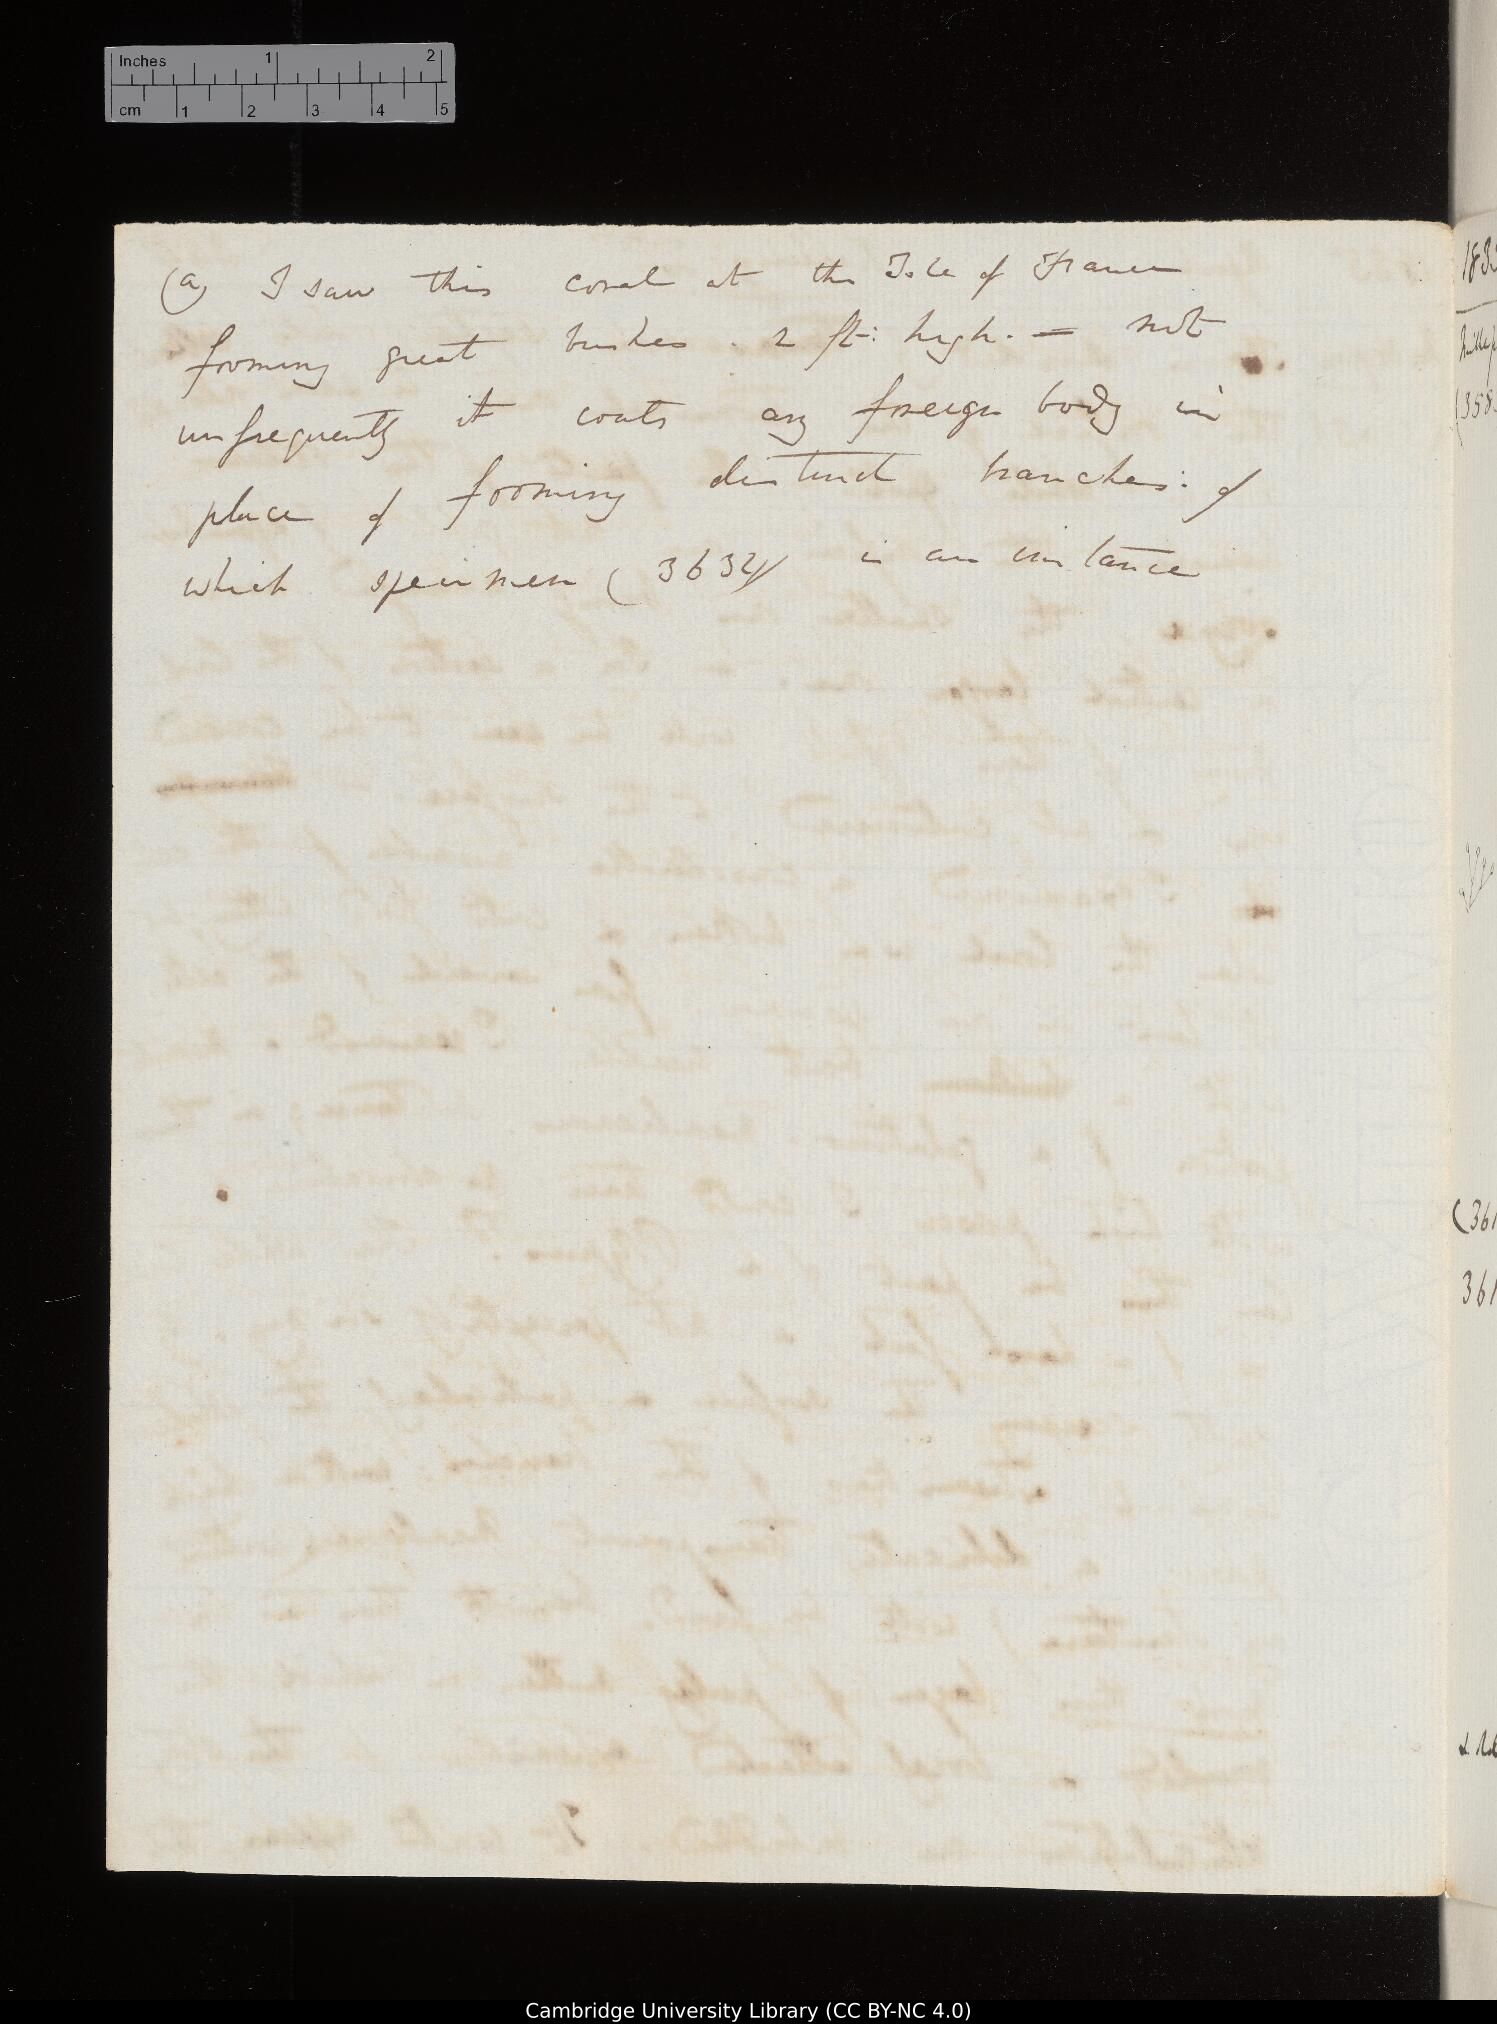 Inches 1 2
cm 1 2 3 4 5
(a) I saw this coral at the Isle of France
forming great bushes. 2 ft: high. = not
unfrequently it coats any foreign body in
place of forming distinct branches: of
which specimen (3632) is an instance
183
(358
(361
361
Cambridge University Library (CC BY-NC 4.0)